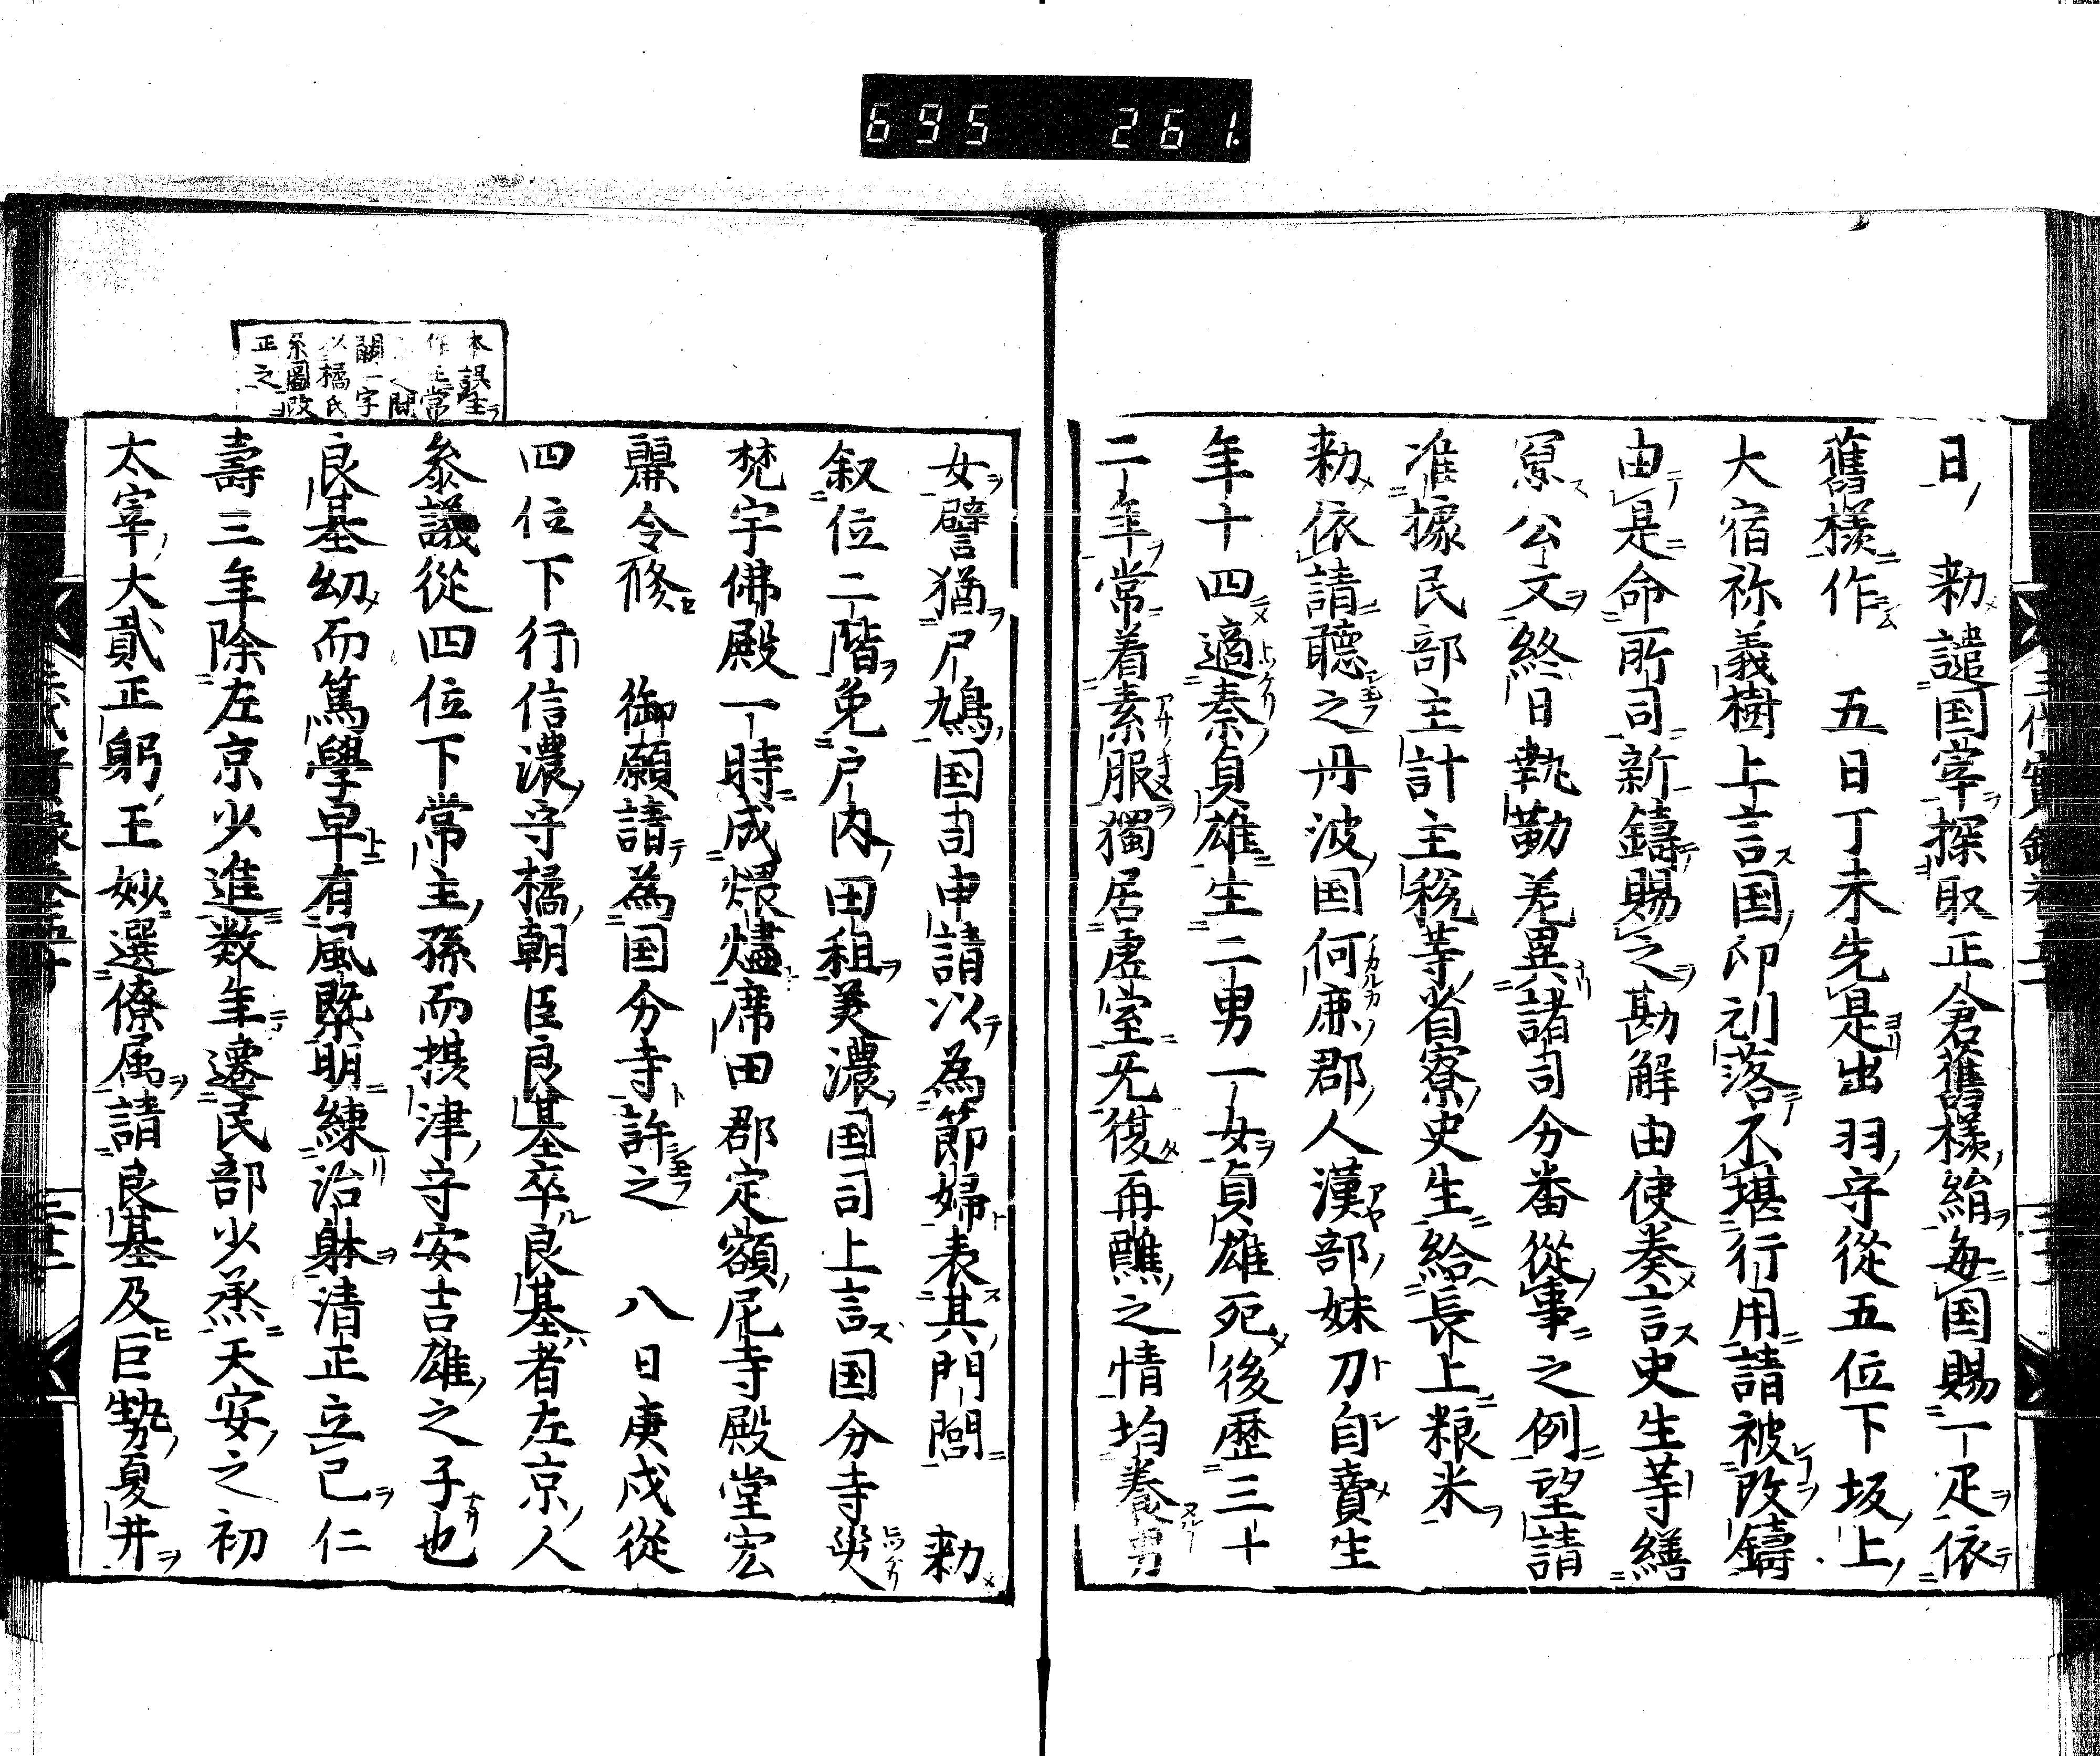 695 261.
日 勅譴国宰探取正倉舊樣絹每国賜一疋依
舊樣作 五日丁未先是出羽守從五位下坂上
大宿祢義樹上言国印刓落不堪行用請被改鑄
由是命所司新鑄賜之勘解由使奏言史生等繕
寫公文終日執勤差異諸司分番從事之例望請
准據民部主計主税等省寮史生給長上粮米
勅依請聽之丹波国何鹿郡人漢部妹刀自賣生
年十四適秦貞雄生二男一女貞雄死後歷三十
二年常着素服獨居虛室无復再醮之情均養男
女譬猶尸鳩国司申請以為節婦表其門閭 勅
叙位二階免户内田租美濃国司上言国分寺災
梵宇佛殿一時成煨燼席田郡定額尼寺殿堂宏
麗令修 御願請為国分寺許之 八日庚戌從
四位下行信濃守橘朝臣良基卒良基者左京人
叅議從四位下常主孫而摂津守安吉雄之子也
良基幼而篤學卓有風槩明練治躰清正立己仁
壽三年除左京少進数年遷民部少烝天安之初
太宰大貳正躬王妙選僚属請良基及巨勢夏井
本誤生
作主常
間
闕一字
以橘氏
系圖改
正之